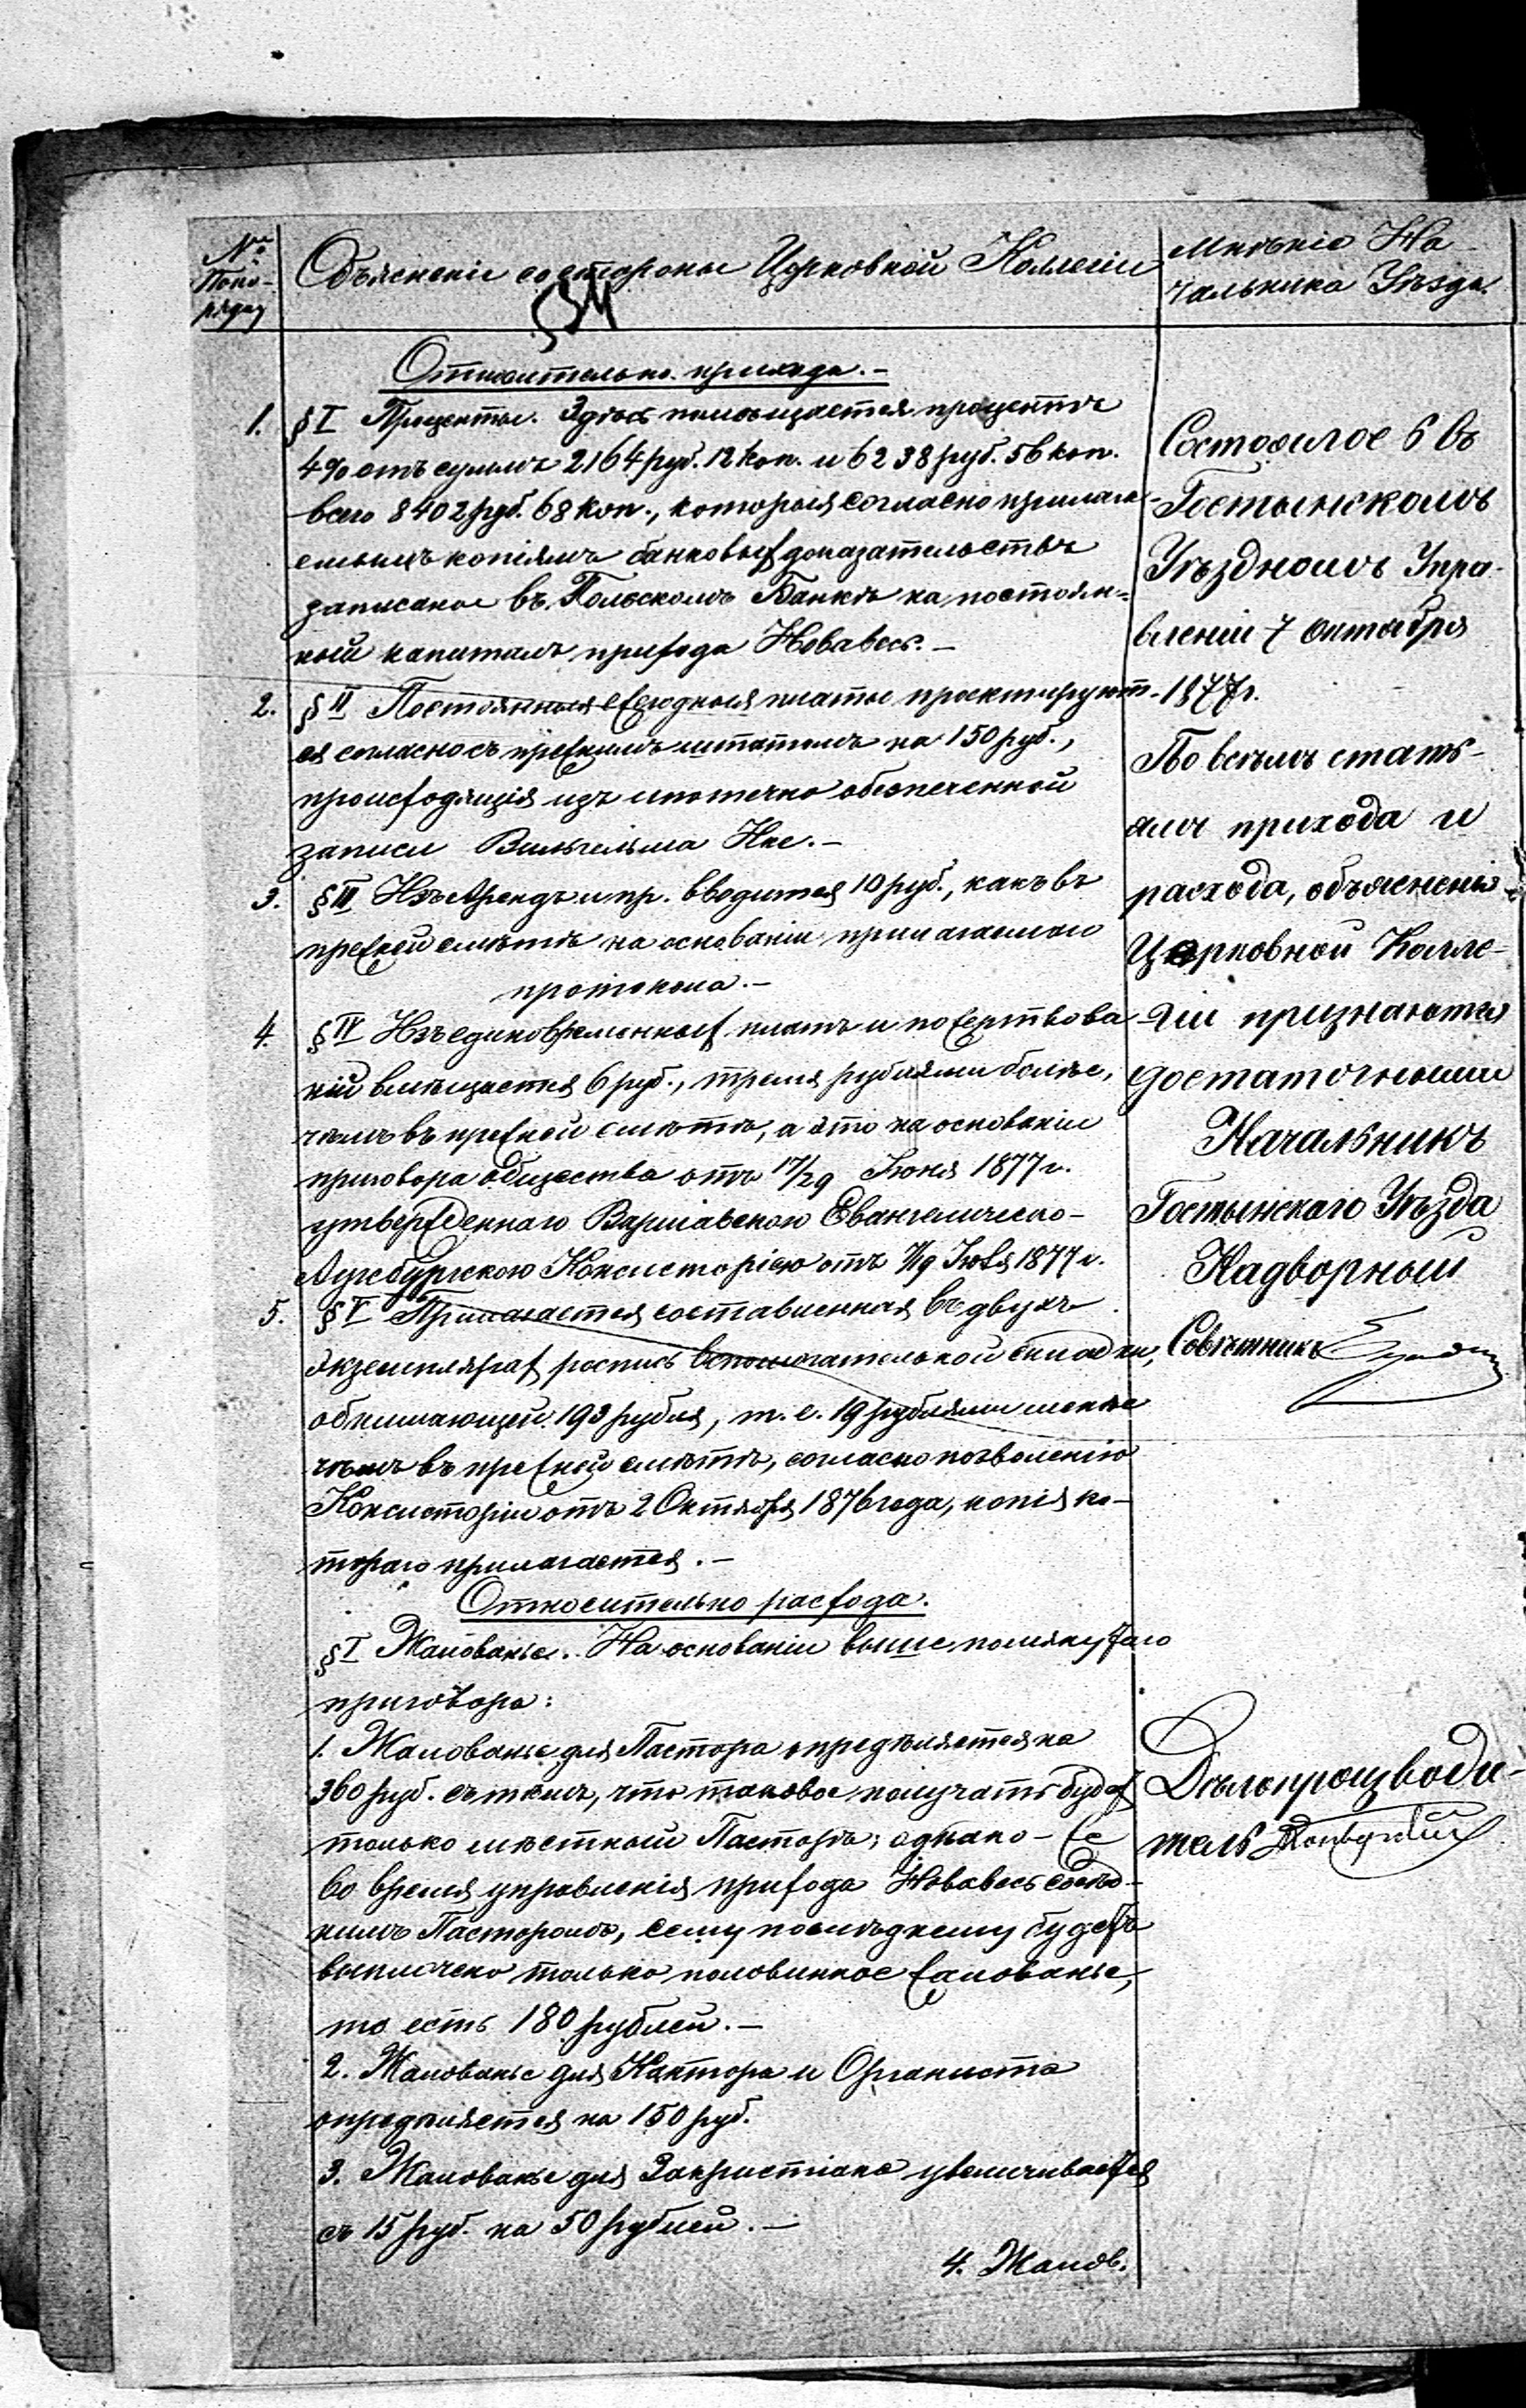 №
По по-
рядку
Объясненіе со стороны Церковной Коллегіи
Мнѣніе На-
чальника Уѣзда.
Относительно прихода.-
1. § I Проценты. Здѣсь помѣщается процентъ
4% отъ суммъ 2164 руб. 12 коп. и 6238 руб. 56 коп.
всего 8402 руб. 68 коп., которыя согласно прилага-
емымъ копіямъ банковыхъ доказательствъ
записаное въ Польскомъ Банкѣ на постоян-
ный капиталъ прихода Новавесь.-
2. § II Постоянныя ежегодныя платы проектируют-
ся согласно съ прежнимъ штатомъ на 150 руб.,
происходящія изъ ипотечно обезпеченной
записи Вильгельма
3. § III Изъ Арендъ и пр. вводится 10 руб., какъ въ
прежней смѣтѣ на основаніи прилагаемаго
протокола.-
4. § IV Изъ единовременныхъ платъ и пожертвова-
ній вмѣщается 6 руб., тремя рублями болѣе,
чѣмъ въ прежней смѣтѣ, а это на основаніи
приговора общества отъ 17/29 Іюня 1877 г.
утвержденнаго Варшавскою Евангелическо-
Аугсбургскою Консисторіею отъ 7/19 Іюля 1877 г.
5. § V Прилагается составленная въ двухъ
экземплярахъ роспись вспомогательной складки,
обнимающей 193 рубля, т. е. 19 рублями менѣе
чѣмъ въ прежней смѣтѣ, согласно позволенію
Консисторіи отъ 2 Октября 1876 года, копія ко-
тораго прилагается.-
Относительно расхода.
§ I Жалованье. На основаніи выше помянутаго
приговора:
1. Жалованье для Пастора опредѣляется на
360 руб. съ тѣмъ, что таковое получать будетъ
только мѣстный Пасторъ; однако-же
во время управленія прихода Новавесь сосѣд-
нимъ Пасторомъ, сему послѣднему будетъ
выплочено только половинное жалованье,
то есть 180 рублей.-
2. Жалованье для Кантора и Органиста
опредѣляется на 150 руб.
3. Жалованье для Закристіана увеличивается
съ 15 руб. на 50 рублей.-
4. Жалов.
Состоялое б въ
Гостынскомъ
Уѣздномъ Упра-
вленіи 7 октября
1877 г.
По всѣмъ стать-
ямъ прихода и
расхода, объясненія
Церковной Колле-
гіи признаются
достаточными
Начальникъ
Гостынскаго Уѣзда
Надворный
Совѣтникъ
Дѣлопроизводи-
тель